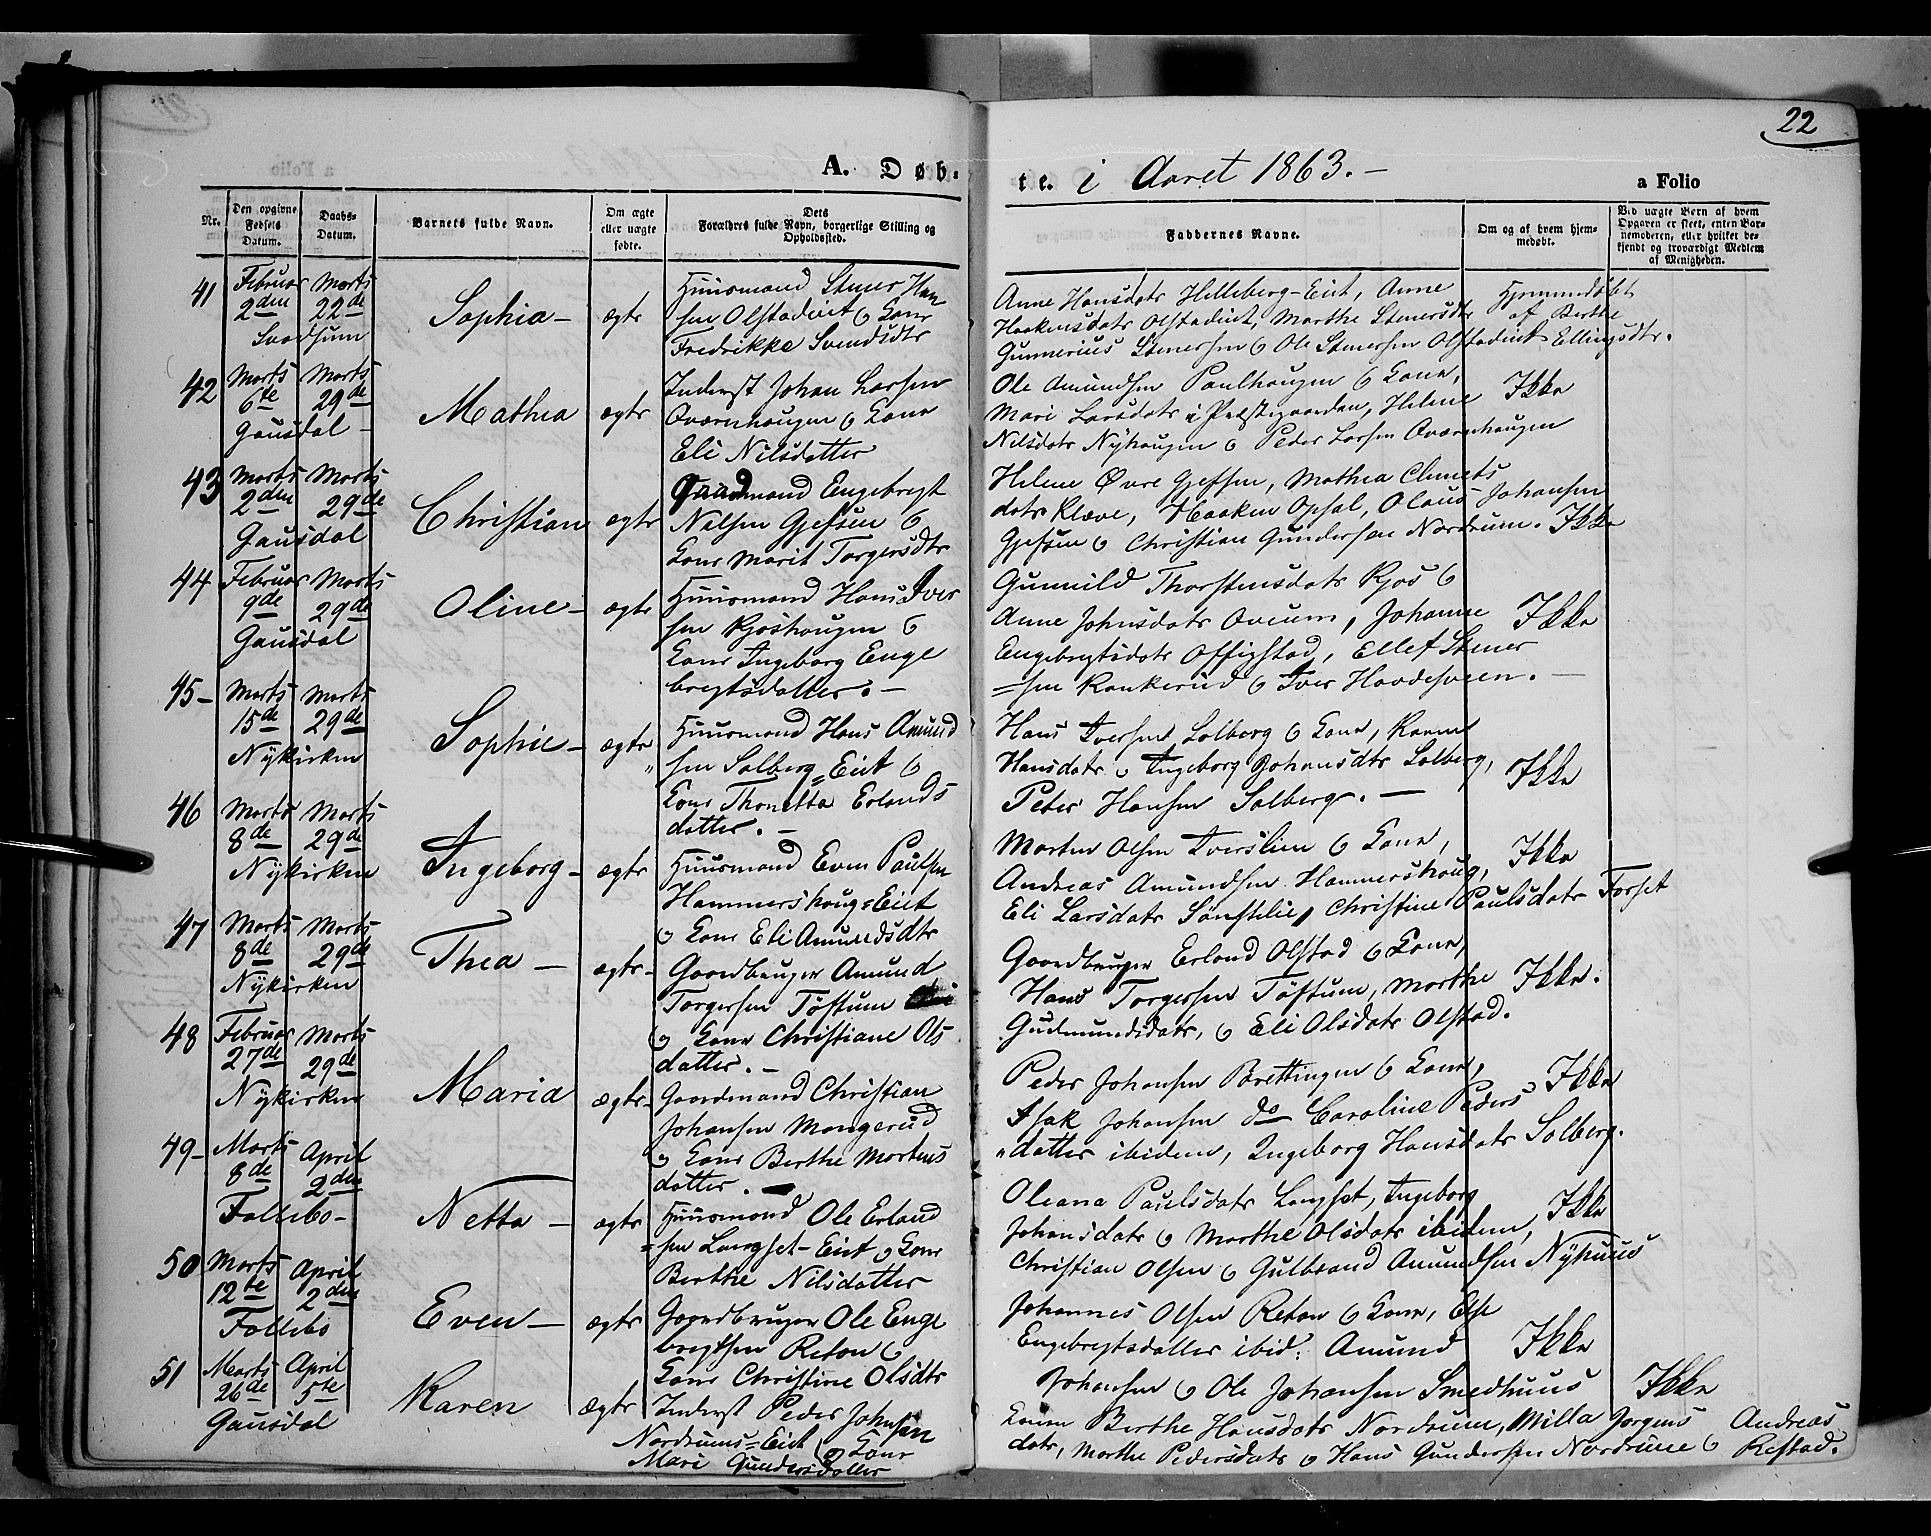 22
A. Døb-
te. i Aaret 1863. -
a Folio
Nr.
Den opgivne Fødsels Datum.
Daabs-Datum.
Barnets fulde Navn.
Om ægte eller uægte fødte.
Dets Forældres fulde Navn, borgerlige Stilling og Opholdssted.
Faddernes Navne.
Om og af hvem hjemmedøbt.
Ved uægte Børn af hvem Opgaven er skeet, enten Barnemoderen, eller hvilket bekjendt og troværdigt Medlem af Menigheden.
41
Februar 2den
Marts 22de
Svadsum
Sophia -
ægte
Huusmand Stener Han
sen Olstadeiet & Kone
Fredrikke Svendsdtr
Anne Hansdatr Helleberg-Eiet, Anne
Haakensdatr Olstadeiet, Marthe Stenersdtr
Gunnerius Stenersen & Ole Stenersen Olstadeiet
Hjemmedøbt
af Berthe
Ellingsdtr.
42
Marts 6te
Marts 29de
Gausdal -
Mathea
ægte
Inderst Johan Larsen
Qværnhaugen & Kone
Eli Nilsdatter
Ole Amundsen Paulhaugen & Kone,
Mari Larsdatr i Præstegaarden, Helene
Nilsdatr Nyhaugen & Peder Larsen Qværnhaugen
Ikke
43
Marts 2den
Marts 29de
Gausdal
Christian
ægte
Gaardmand Engebregt
Nilsen Gjefsen &
Kone Marit Torgersdtr
Helene Øvre Gjefsen, Mathea Clemets
datr Kleve, Haaken Opsal, Olaus Johansen
Gjefsen & Christian Gundersen Nordrum.
Ikke
44
Februar 9de
Marts 29de
Gausdal
Oline -
ægte
Huusmand Hans Iver
sen Kjoshaugen &
Kone Ingeborg Enge
bregtsdatter. -
Gunnild Thorstensdatr Kjos &
Anne Johnsdatr Aveum, Johanne
Engebregtsdatr Offigstad, Ellef Stener
=sen Rankerud & Iver Havdesveen. -
Ikke
45 -
Marts 15de
Marts 29de
Nykirken
Sophie -
ægte
Huusmand Hans Amund
sen Solberg=Eiet &
Kone Thonetta Erlands
datter. -
Hans Iversen Solberg & Kone, Karen
Hansdatr & Ingeborg Johansdtr Solberg,
Peter Hansen Solberg. -
Ikke
46
Marts 8de
Marts 29de
Nykirken
Ingeborg -
ægte
Huusmand Even Paulsen
Hammershoug=Eiet
& Kone Eli Amundsdtr
Morten Olsen Iverslien & Kone,
Andreas Amundsen Hammershoug,
Eli Larsdatr Sønstelie, Christine Paulsdatr Forset
Ikke
47
Marts 8de
Marts 29de
Nykirken
Thea -
ægte -
Gaardbruger Amund
Torgersen Töftum
& Kone Christiane Ols
datter. -
Gaardbruger Erland Olstad & Kone,
Hans Torgersen Töftum, Marthe
Gudmundsdatr, & Eli Olsdatr Olstad.
Ikke.
48
Februar 27de
Marts 29de
Nykirken
Maria
ægte -
Gaardmand Christian
Johansen Mangerud
& Kone Berthe Mortens
datter. -
Peder Johansen Brettingen & Kone,
Isak Johansen do Caroline Peders
"datter ibidem, Ingeborg Hansdatr Solberg.
Ikke
49 -
Marts 8de
April 2den
Follebo -
Netta -
ægte
Huusmand Ole Erland
=sen Langset-Eiet & Kone
Berthe Nilsdatter
Oleana Paulsdatr Langset, Ingeborg
Johansdatr & Marthe Olsdatr ibidem,
Christian Olsen & Gulbrand Amundsen Nyhuus
Ikke
50
Marts 12te
April 2den
Follebo
Even -
ægte
Gaardbruger Ole Enge
bregtsen Reton &
Kone Christine Olsdtr
Johannes Olsen Reton & Kone, Else
Engebregtsdatter ibid: Amund
Johansen & Ole Johansen Smedhuus
Ikke
51
Marts 26de
April 5te
Gausdal
Karen
ægte
Inderst Peder Johnsen
Nordrums=Eiet & Kone
Mari Gundersdatter
Konen Berthe Hansdatr Nordrum, Milla Jørgens
datr, Marthe Pedersdatr & Hans Gundersen Nordrum & Andreas
Refstad.
Ikke